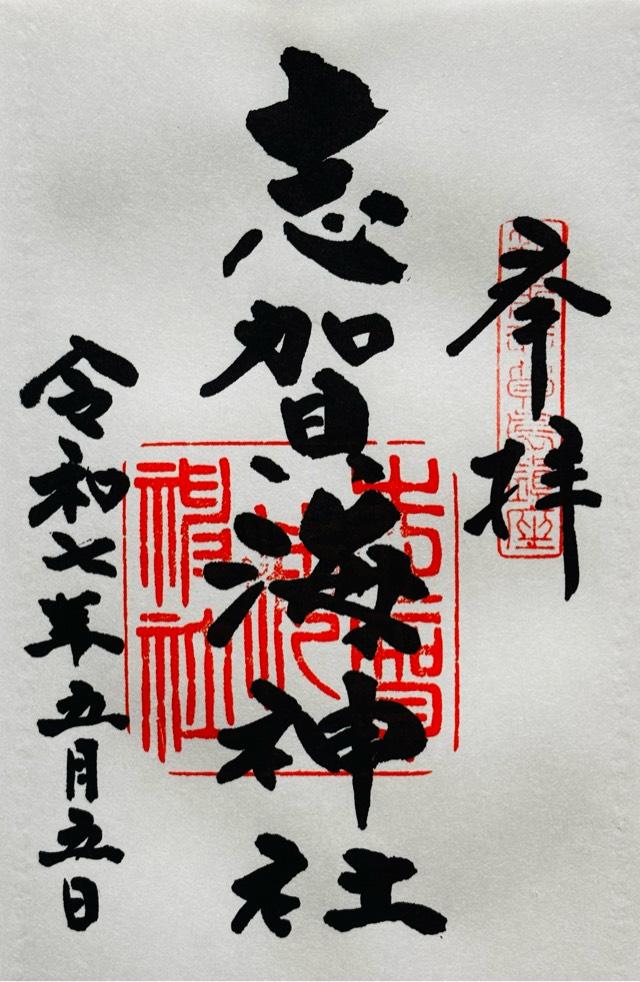 奉拝
志賀海神社
令和七年五月五日
志賀海神社